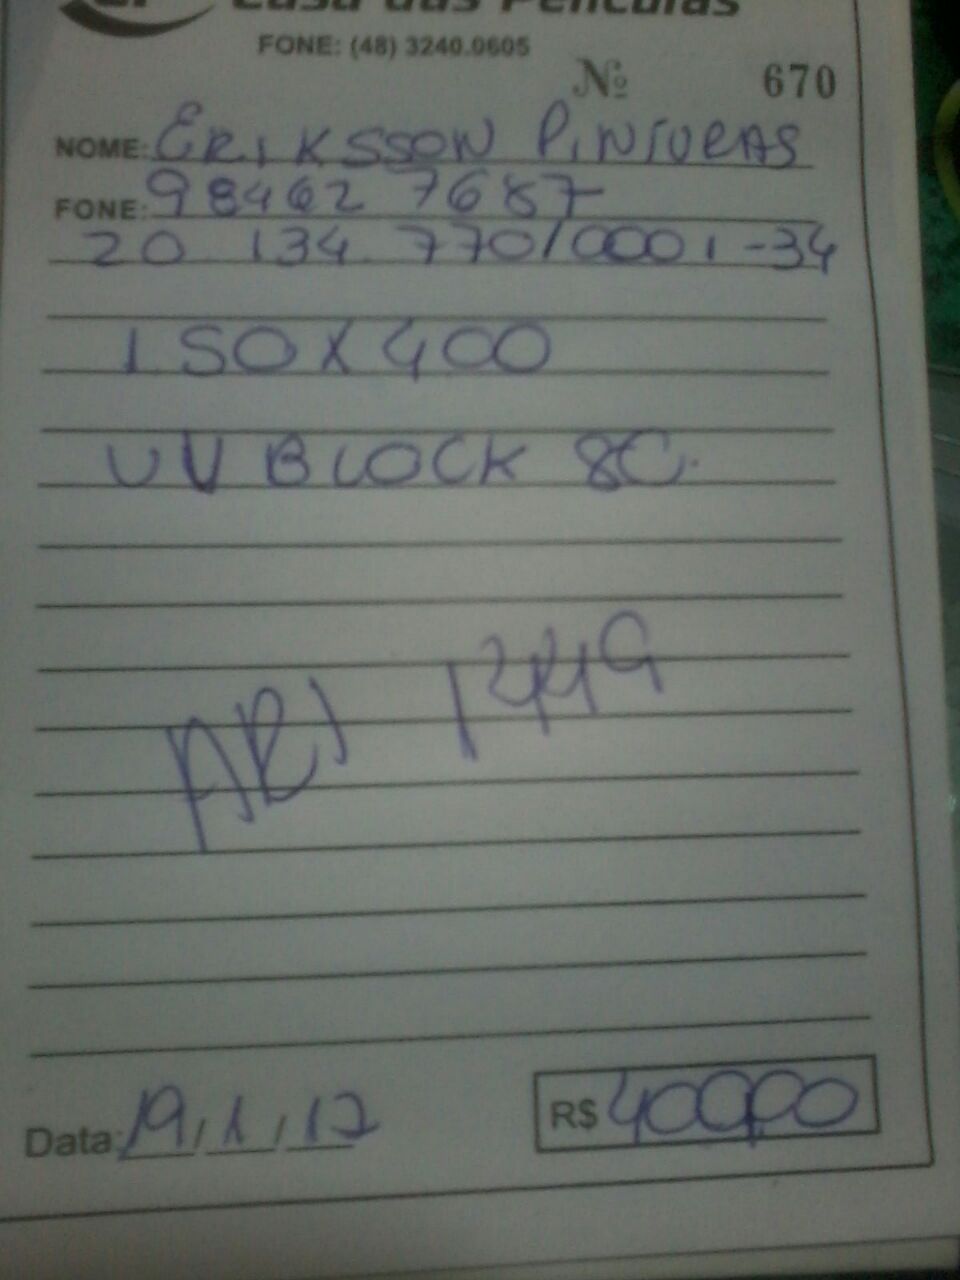 Casa das Películas
FONE: (48) 3240.0605
Nº 670
NOME: ERIKSSON PINTURAS
FONE: 98462 7687
20 134 770/0001-34
150X400
UV BLOCK 8C.
Data: 19/1/17
R$ 400,00